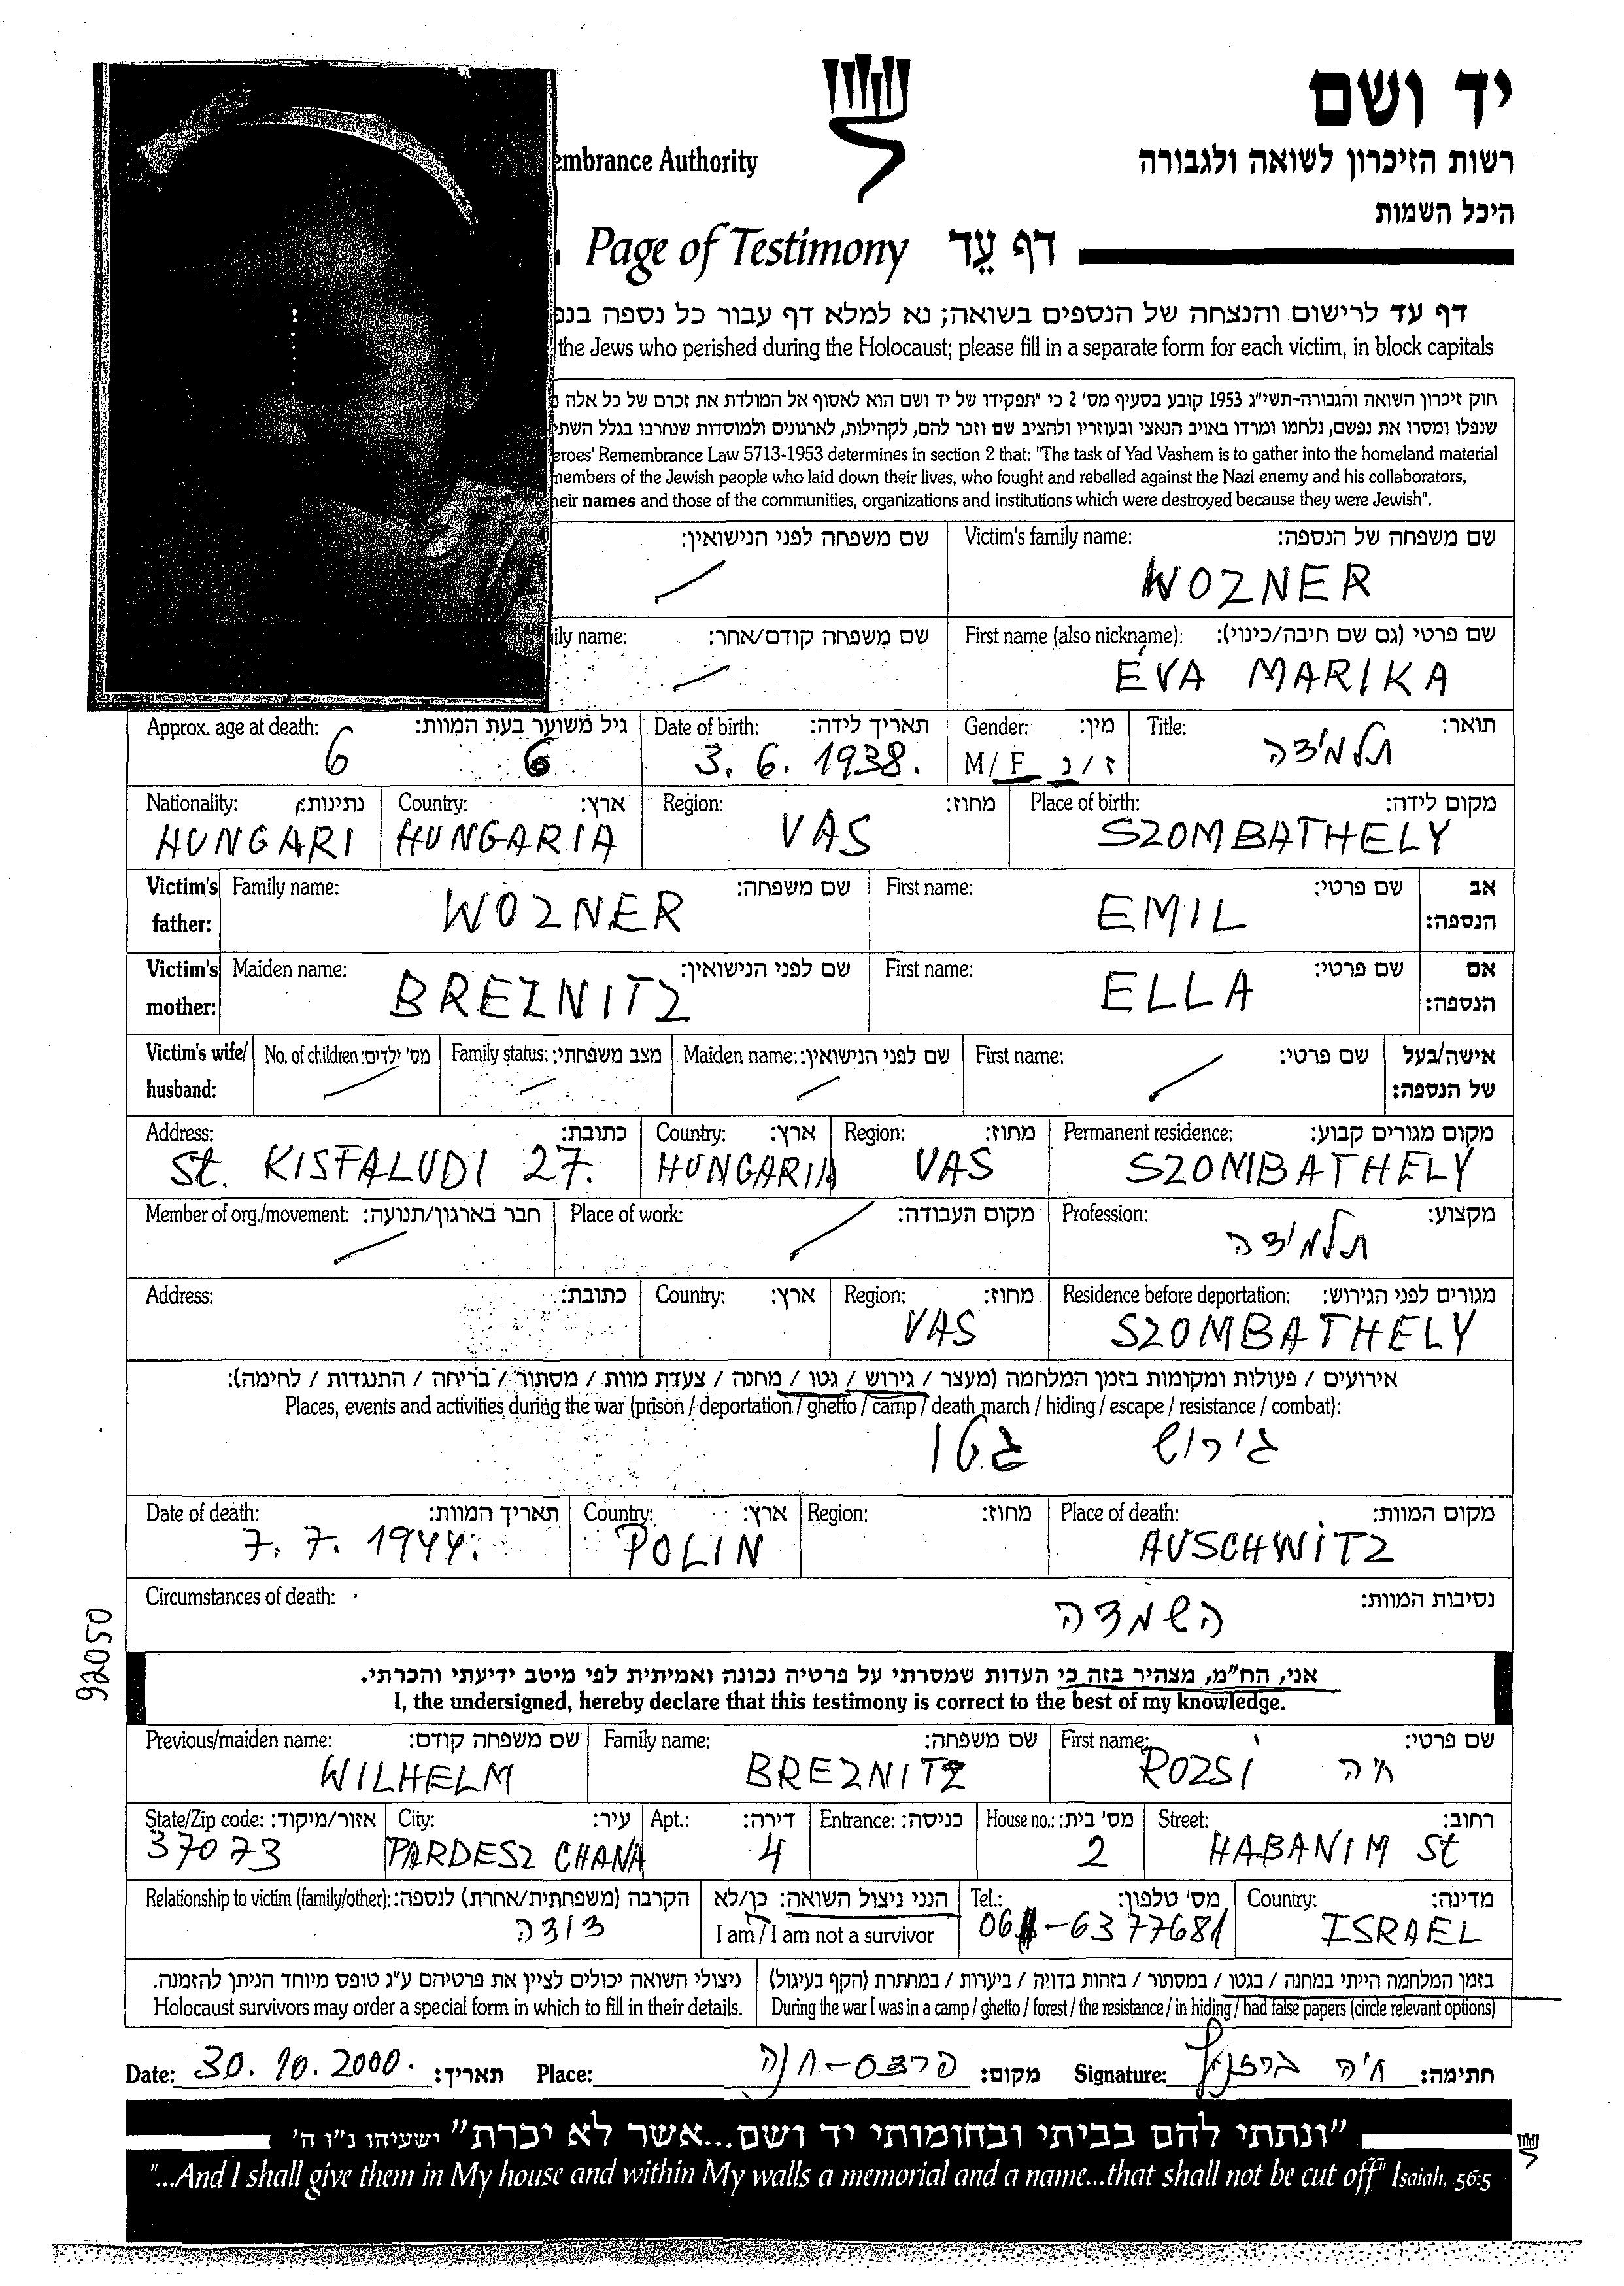 יד ושם
embrance Authority
רשות הזיכרון לשואה ולגבורה
היכל השמות
Page of Testimony דף עֵד
דף עד לרישום והנצחה של הנספים בשואה; נא למלא דף עבור כל נספה בנפ
the Jews who perished during the Holocaust; please fill in a separate form for each victim, in block capitals
חוק זיכרון השואה והגבורה-תשי"ג 1953 קובע בסעיף מס' 2 כי "תפקידו של יד ושם הוא לאסוף אל המולדת את זכרם של כל אלה
שנפלו ומסרו את נפשם, נלחמו ומרדו באויב הנאצי ובעוזריו ולהציב שם וזכר להם, לקהילות, לארגונים ולמוסדות שנחרבו בגלל השתי
eroes' Remembrance Law 5713-1953 determines in section 2 that: "The task of Yad Vashem is to gather into the homeland material
members of the Jewish people who laid down their lives, who fought and rebelled against the Nazi enemy and his collaborators,
heir names and those of the communities, organizations and institutions which were destroyed because they were Jewish".
שם משפחה לפני הנישואין: Victim's family name: שם משפחה של הנספה:
WOZNER
ily name: שם משפחה קודם/אחר: First name (also nickname): שם פרטי (גם שם חיבה/כינוי):
ÉVA MARIKA
Approx. age at death: גיל משוער בעת המוות: Date of birth: תאריך לידה: Gender: מין: Title: תואר:
6 6 3. 6. 1938. M/F ז/נ תלמידה
Nationality: נתינות: Country: ארץ: Region: מחוז: Place of birth: מקום לידה:
HUNGARI HUNGARIA VAS SZOMBATHELY
Victim's Family name: שם משפחה: First name: שם פרטי: אב
father: WOZNER EMIL הנספה:
Victim's Maiden name: שם לפני הנישואין: First name: שם פרטי: אם
mother: BREZNITZ ELLA הנספה:
Victim's wife/ No. of children: מס' ילדים: Family status: מצב משפחתי: Maiden name: שם לפני הנישואין: First name: שם פרטי: אישה/בעל
husband: של הנספה:
Address: כתובת: Country: ארץ: Region: מחוז: Permanent residence: מקום מגורים קבוע:
St. KISFALUDI 27. HUNGARIA VAS SZOMBATHELY
Member of org./movement: חבר בארגון/תנועה: Place of work: מקום העבודה: Profession: מקצוע:
תלמידה
Address: כתובת: Country: ארץ: Region: מחוז: Residence before deportation: מגורים לפני הגירוש:
VAS SZOMBATHELY
אירועים / פעולות ומקומות בזמן המלחמה (מעצר / גירוש / גטו / מחנה / צעדת מוות / מסתור / בריחה / התנגדות / לחימה):
Places, events and activities during the war (prison / deportation / ghetto / camp / death march / hiding / escape / resistance / combat):
גירוש גטו
Date of death: תאריך המוות: Country: ארץ: Region: מחוז: Place of death: מקום המוות:
7. 7. 1944. POLIN AUSCHWITZ
Circumstances of death: נסיבות המוות:
השמדה
92050
אני, הח"מ, מצהיר בזה כי העדות שמסרתי על פרטיה נכונה ואמיתית לפי מיטב ידיעתי והכרתי.
I, the undersigned, hereby declare that this testimony is correct to the best of my knowledge.
Previous/maiden name: שם משפחה קודם: Family name: שם משפחה: First name: שם פרטי:
WILHELM BREZNITZ ROZSI חיה
State/Zip code: אזור/מיקוד: City: עיר: Apt.: דירה: Entrance: כניסה: House no.: מס' בית: Street: רחוב:
37073 PARDESZ CHANA 4 2 HABANIM St
Relationship to victim (family/other): הקרבה (משפחתית/אחרת) לנספה: הנני ניצול השואה: כן/לא Tel.: מס' טלפון: Country: מדינה:
דודה I am / I am not a survivor 06-6377681 ISRAEL
ניצולי השואה יכולים לציין את פרטיהם ע"ג טופס מיוחד הניתן להזמנה. בזמן המלחמה הייתי במחנה / בגטו / במסתור / בזהות בדויה / ביערות / במחתרת (הקף בעיגול)
Holocaust survivors may order a special form in which to fill in their details. During the war I was in a camp / ghetto / forest / the resistance / in hiding / had false papers (circle relevant options)
Date: 30. 10. 2000. תאריך: Place: פרדס-חנה מקום: Signature: חיה ברזניץ חתימה:
"ונתתי להם בביתי ובחומותי יד ושם...אשר לא יכרת" ישעיהו נ"ו ה'
"...And I shall give them in My house and within My walls a memorial and a name...that shall not be cut off" Isaiah, 56:5